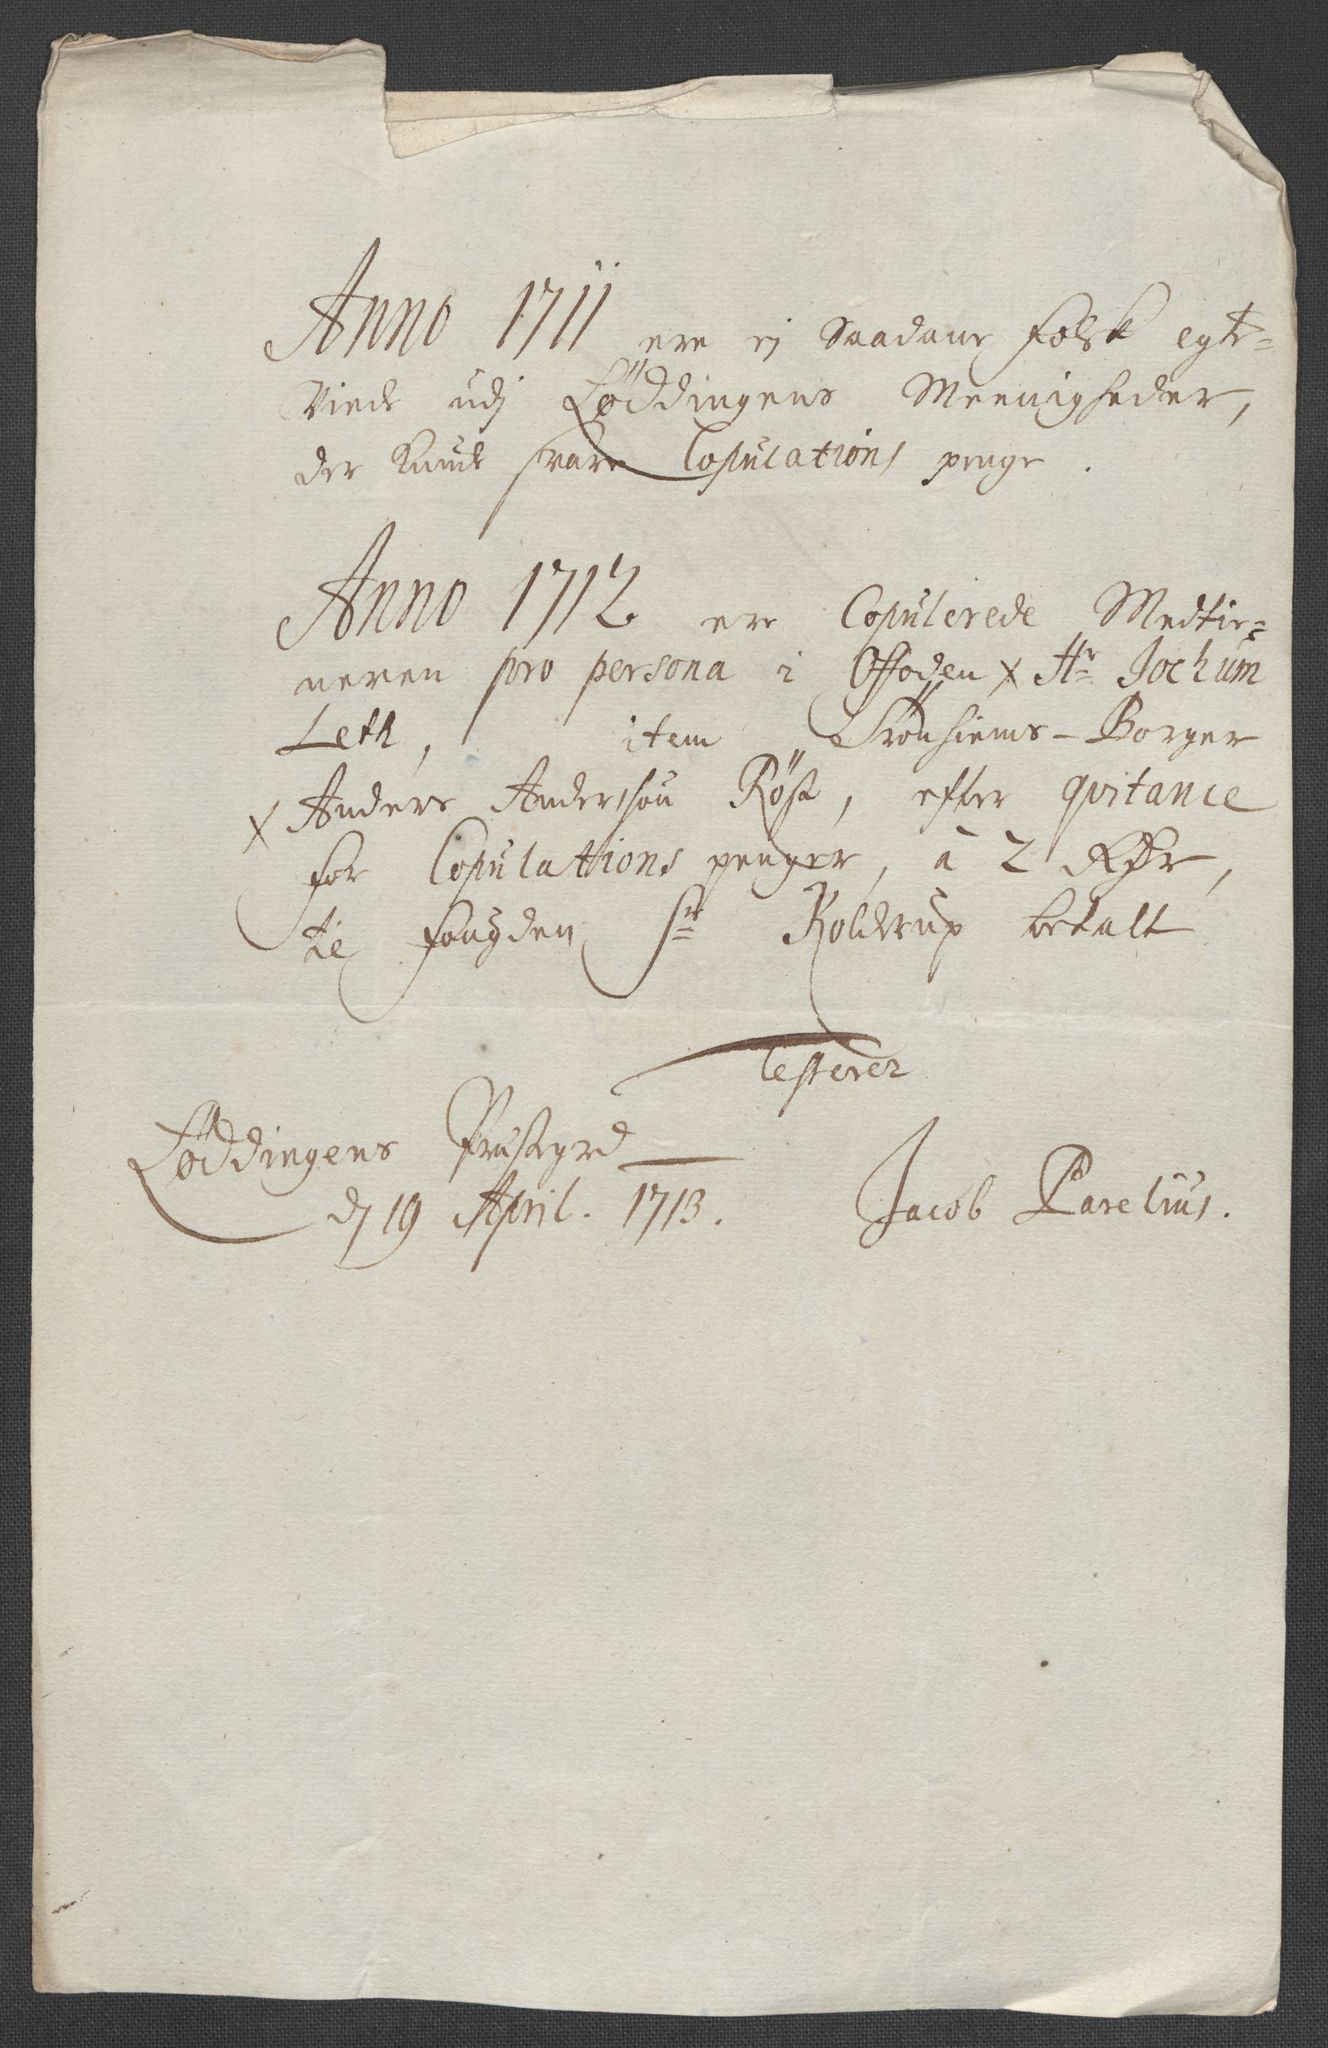 Anno 1711 ere ej Saadane Folck egte=
Viede udj Løddingens Meenigheder,
der kunde svare Copulations penge.
Anno 1712 ere Copulerede Medtie=
neren pro persona i Ofoden x Hr Jochum
Leth, item Trönhiems-Borger
x Anders Anderssøn Röst, efter qvitance
for Copulations penger, à 2 Rdr,
til Fougden Sr Roldrup betalt
Testerer
Løddingens Præstegrd
dj 19 April. 1713.
Jacob Parelius.